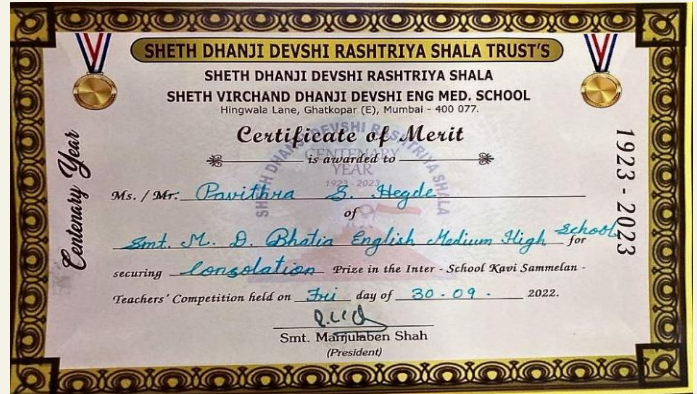 SHETH DHANJI DEVSHI RASHTRIYA SHALA TRUST'S
SHETH DHANJI DEVSHI RASHTRIYA SHALA
SHETH VIRCHAND DHANJI DEVSHI ENG MED. SCHOOL
Hingwala Lane, Ghatkopar (E), Mumbai - 400 077.
Certificate of Merit
is awarded to
SHETH DHANJI DEVSHI RASHTRIYA SHALA
CENTENARY
YEAR
1923 - 2023
Centenary Year
1923 - 2023
Ms. / Mr. Pavithra S. Hegde
of
Smt. M. D. Bhatia English Medium High School for
securing Consolation Prize in the Inter - School Kavi Sammelan -
Teachers' Competition held on Fri day of 30 - 09 - 2022.
Smt. Manjulaben Shah
(President)